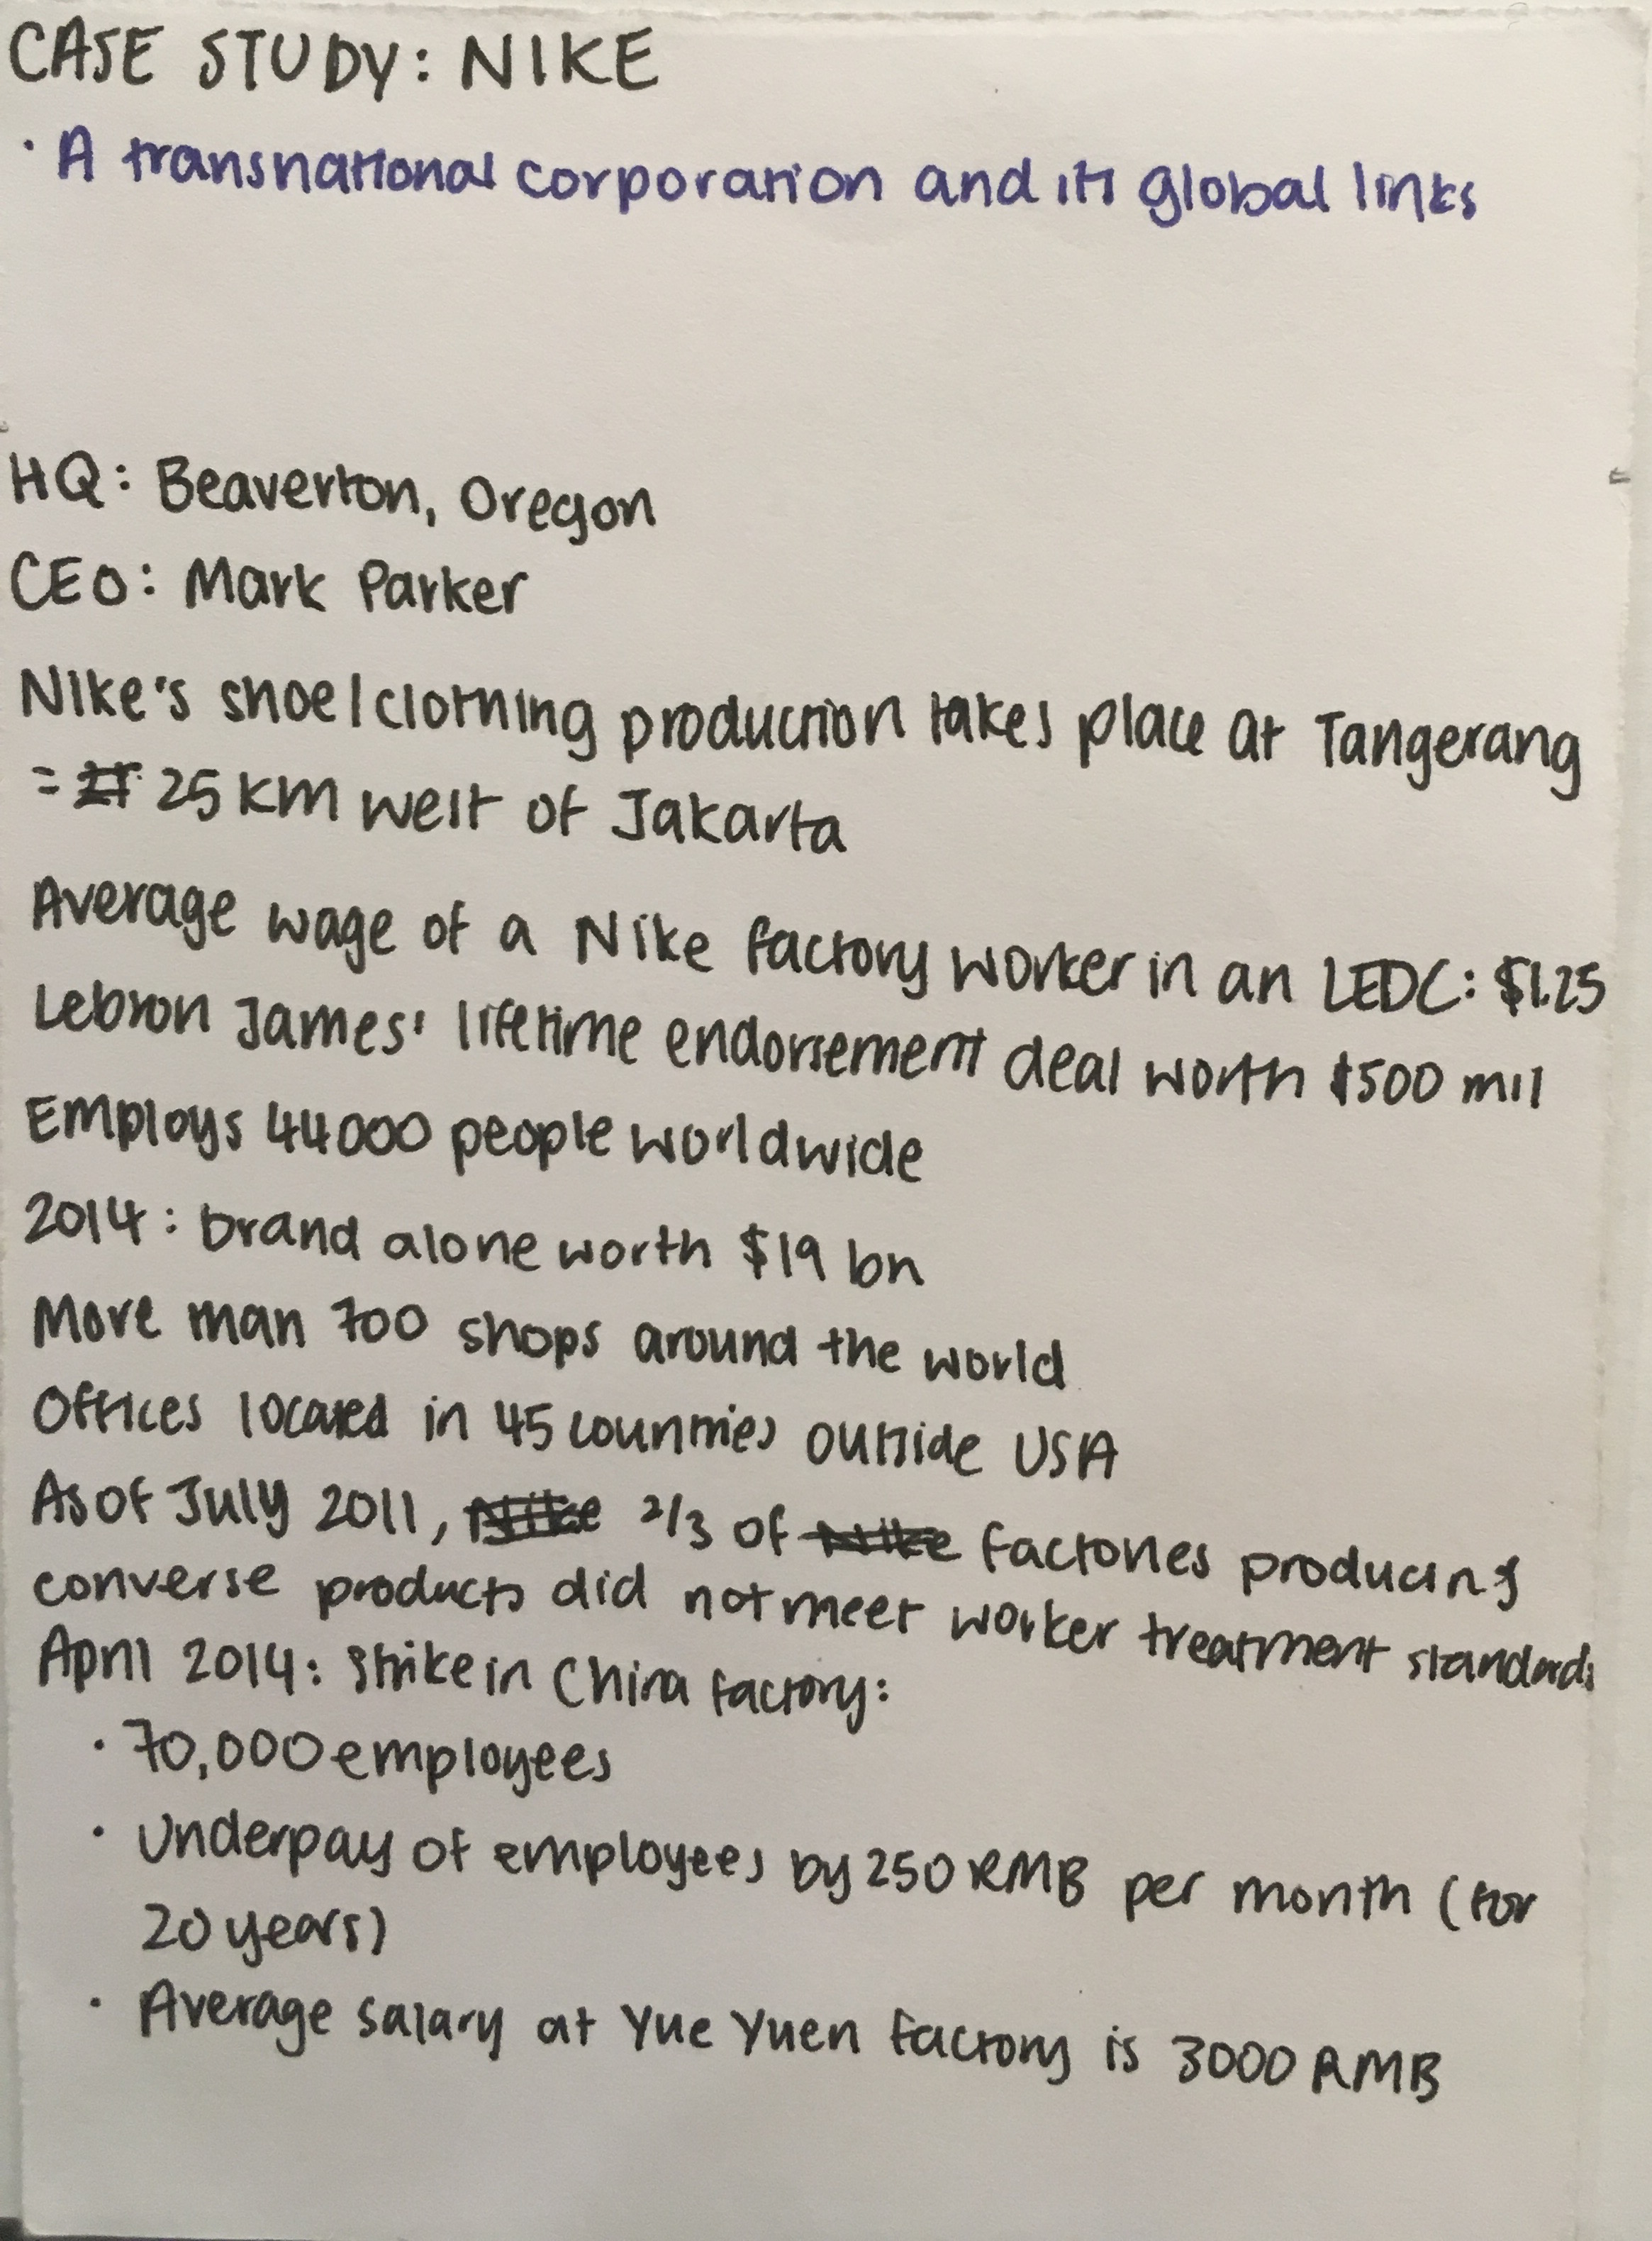 CASE STUDY: NIKE
· A transnational corporation and its global links
HQ: Beaverton, Oregon
CEO: Mark Parker
Nike's shoe/clothing production takes place at Tangerang
= 25 km west of Jakarta
Average wage of a Nike factory worker in an LEDC: $1.25
Lebron James' lifetime endorsement deal worth $500 mil
Employs 44000 people worldwide
2014: brand alone worth $19 bn
More than 700 shops around the world
Offices located in 45 countries outside USA
As of July 2011, Nike 2/3 of Nike factories producing
converse products did not meet worker treatment standards
April 2014: Strike in China factory:
· 70,000 employees
· Underpay of employees by 250 RMB per month (for
20 years)
· Average salary at Yue Yuen factory is 3000 RMB